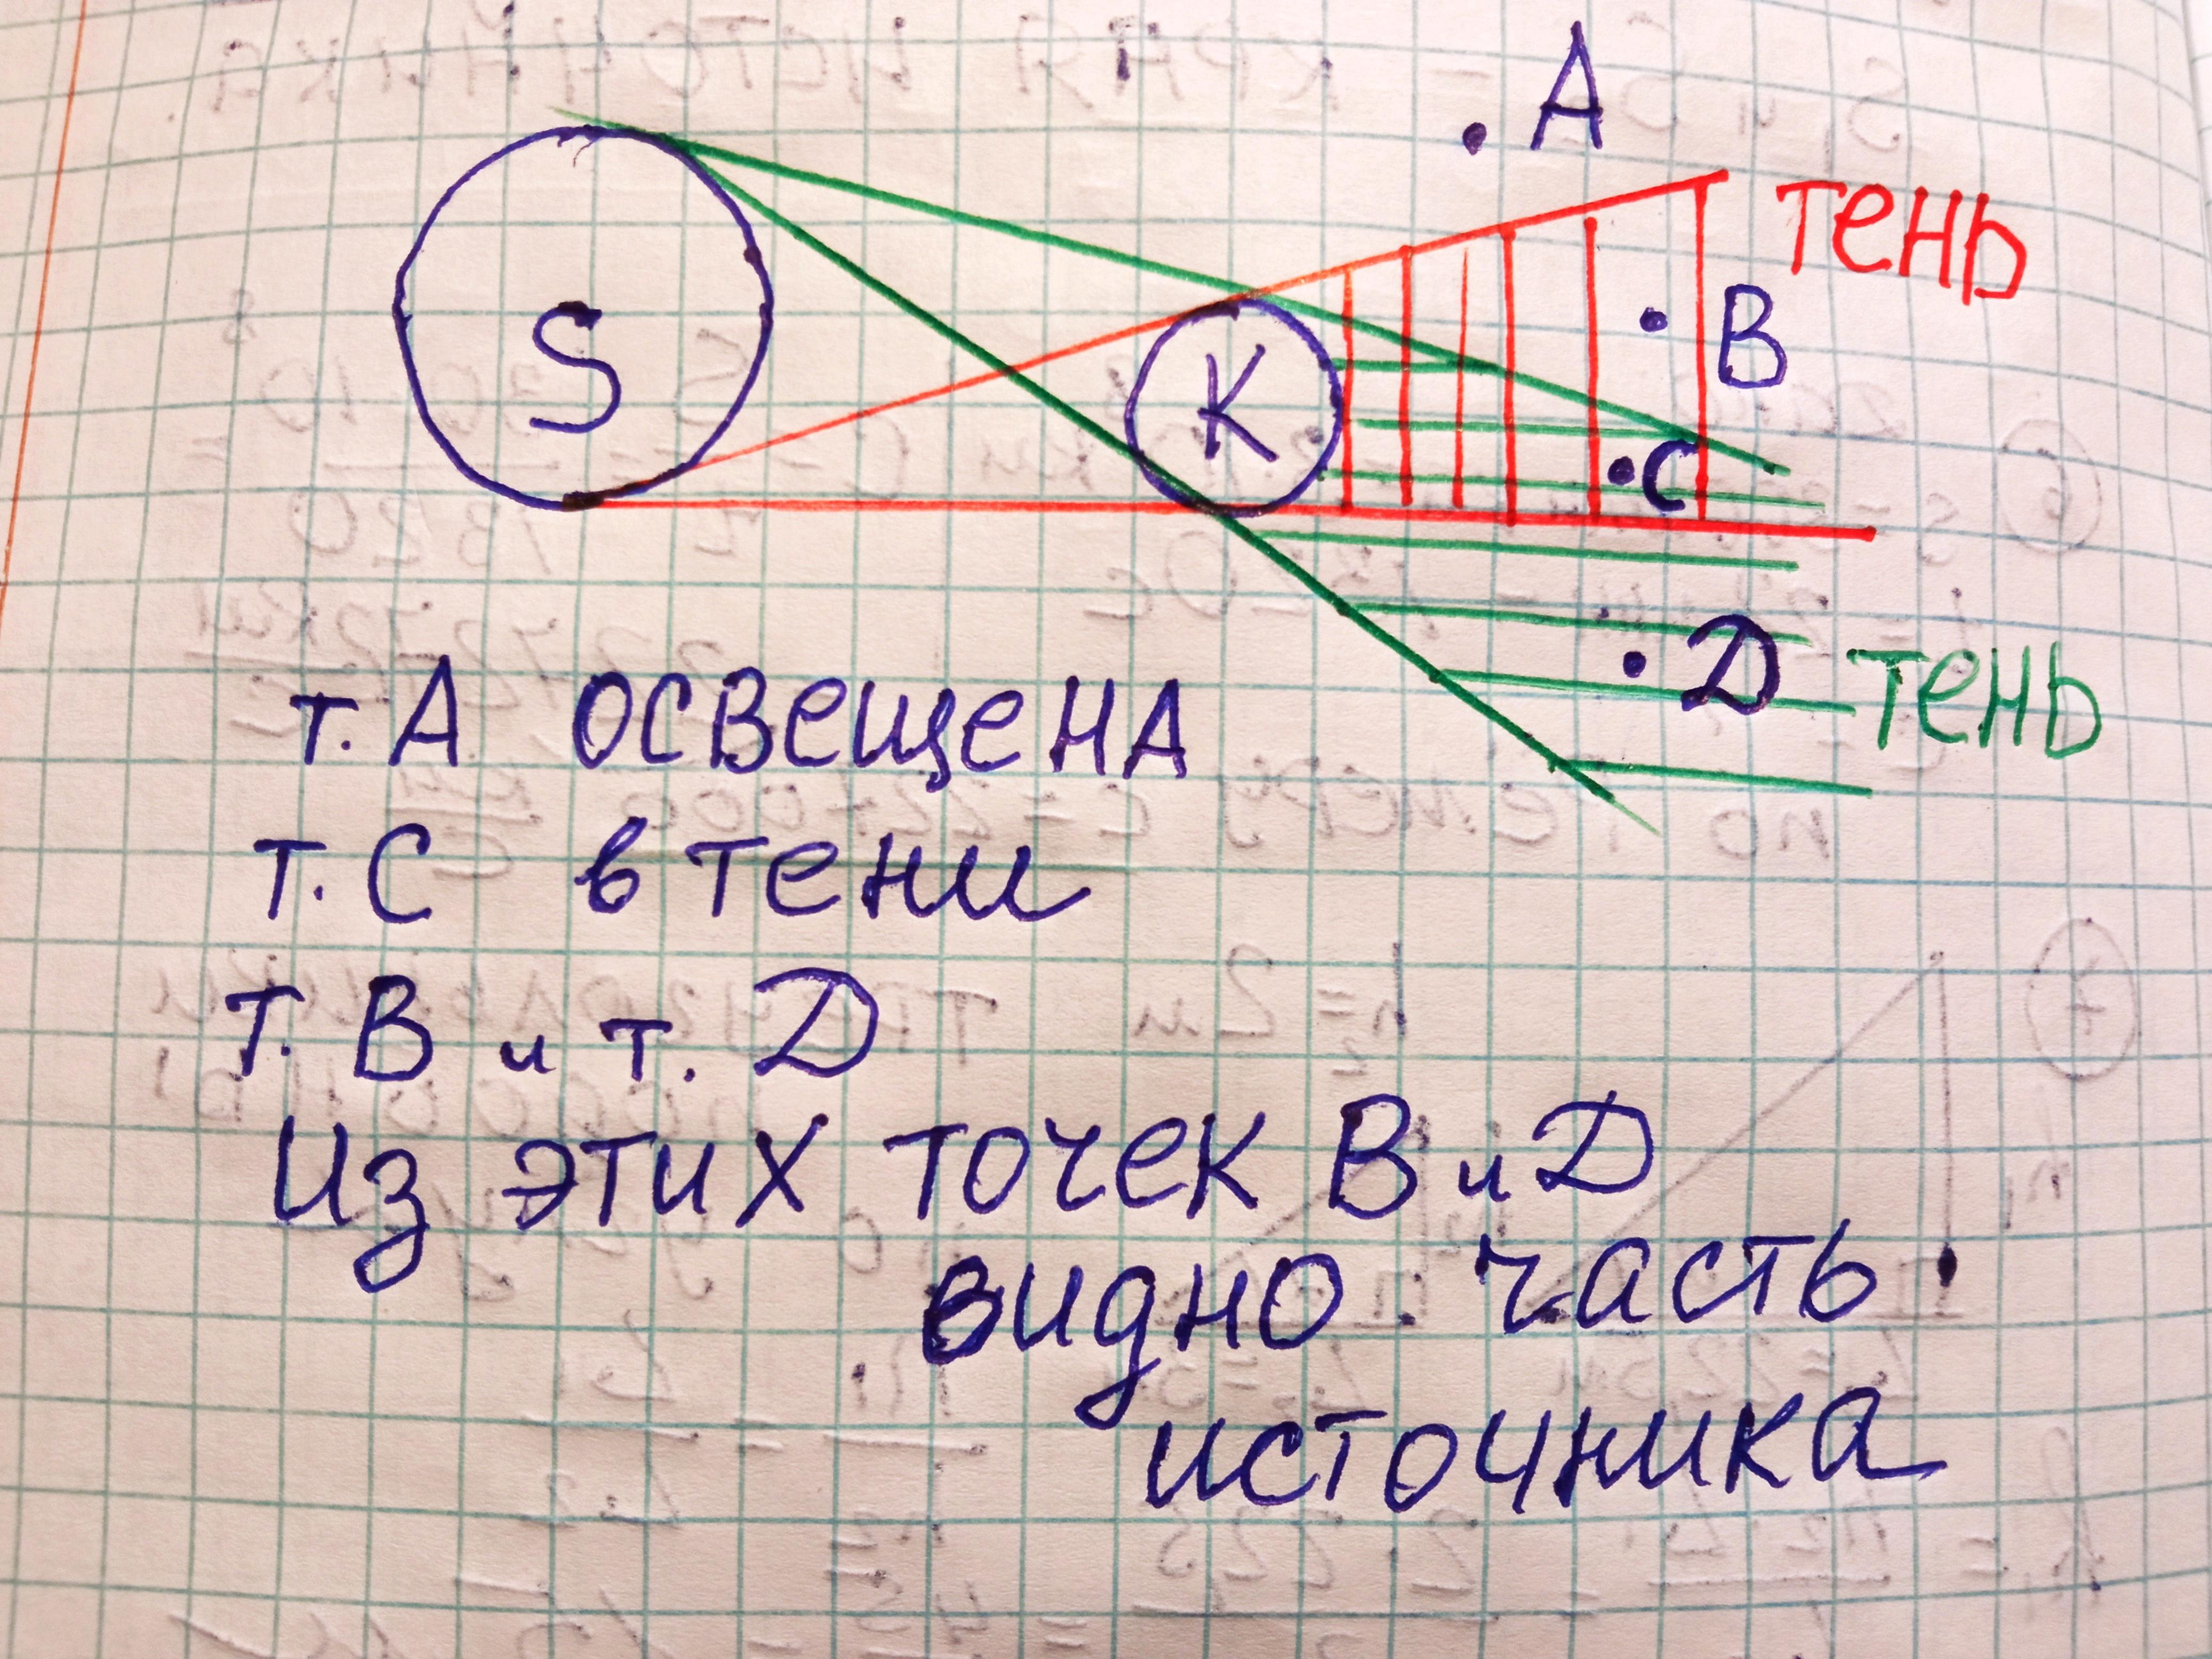 А
тень
S
K
В
С
D
тень
т. А освещена
т. С в тени
т. В и т. D
Из этих точек В и D
видно часть
источника